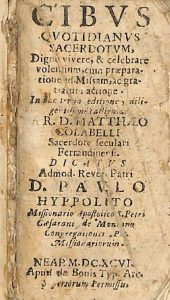 CIBVS
QVOTIDIANVS
SACERDOTVM,
Dignè vivere, & celebrare
volentium, cum præpara-
tione ad Missam, ac gra-
tiarum actione.
In hac editione
A R. D. MATTHÆO
COLABELLI
Sacerdote seculari
DICATVS
Admod. Rever. Patri
D. PAVLO
HYPPOLITO
Missionario Apostolico S. Petri
Cæsarani de
Congregationis
Missionariorum.
NEAP. M.DC.XCVI.
Apud de Bonis Typ. Arc.
Permissu